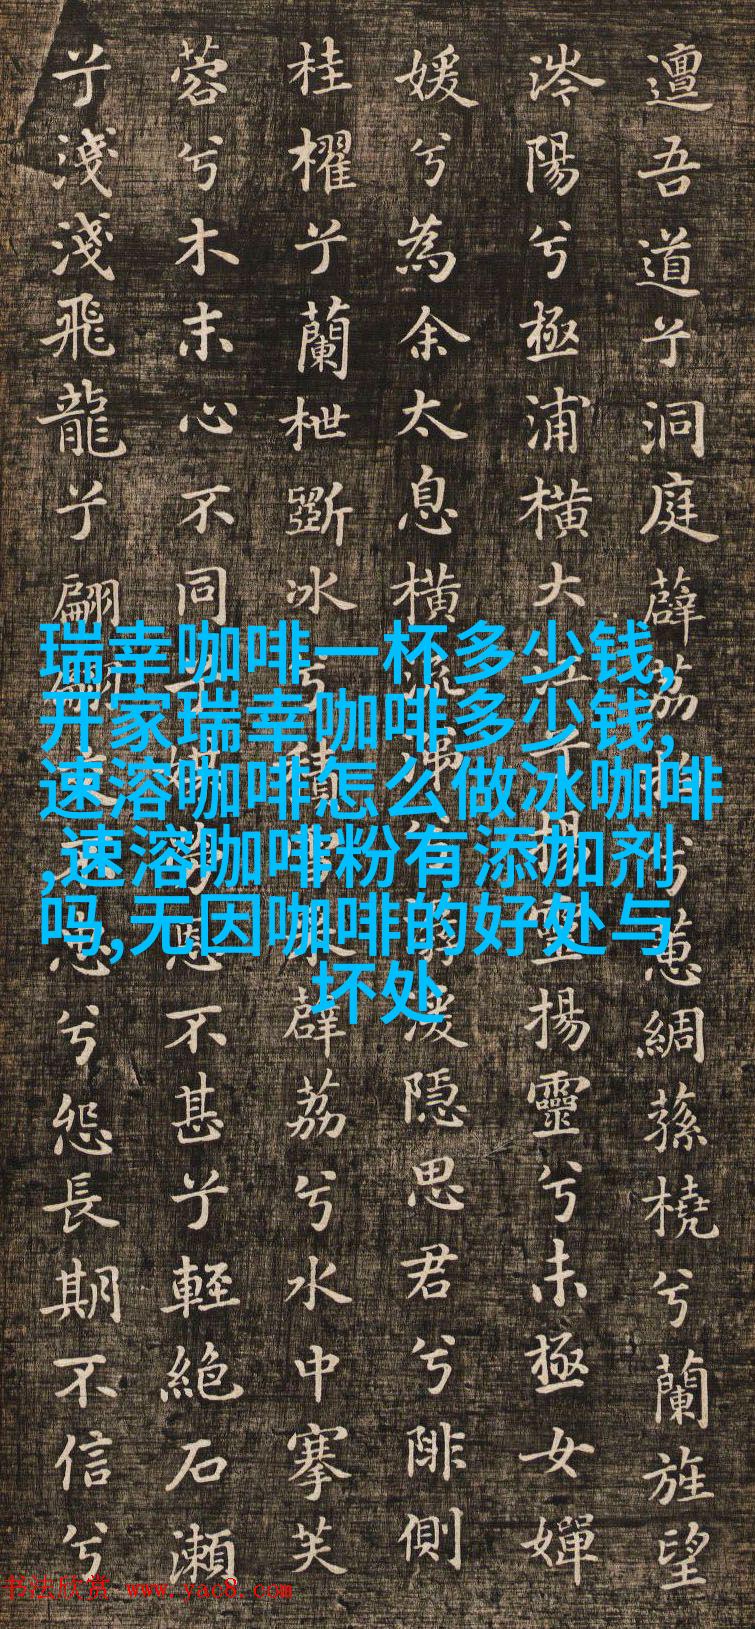 邅吾道兮洞庭薜荔拍兮蕙綢蓀橈兮蘭旌望
涔陽兮極浦橫大江兮揚靈揚靈兮未極女嬋
媛兮為余太息橫流涕兮潺湲隱思君兮陫側
桂櫂兮蘭枻斲冰兮積雪采薜荔兮水中搴芙
蓉兮木末心不同兮媒勞恩不甚兮輕絕石瀨
兮淺淺飛龍兮翩翩交不忠兮怨長期不信兮
瑞幸咖啡一杯多少钱,
开家瑞幸咖啡多少钱,
速溶咖啡怎么做冰咖啡
,速溶咖啡粉有添加剂
吗,无因咖啡的好处与
坏处
书法欣赏 www.yac8.com